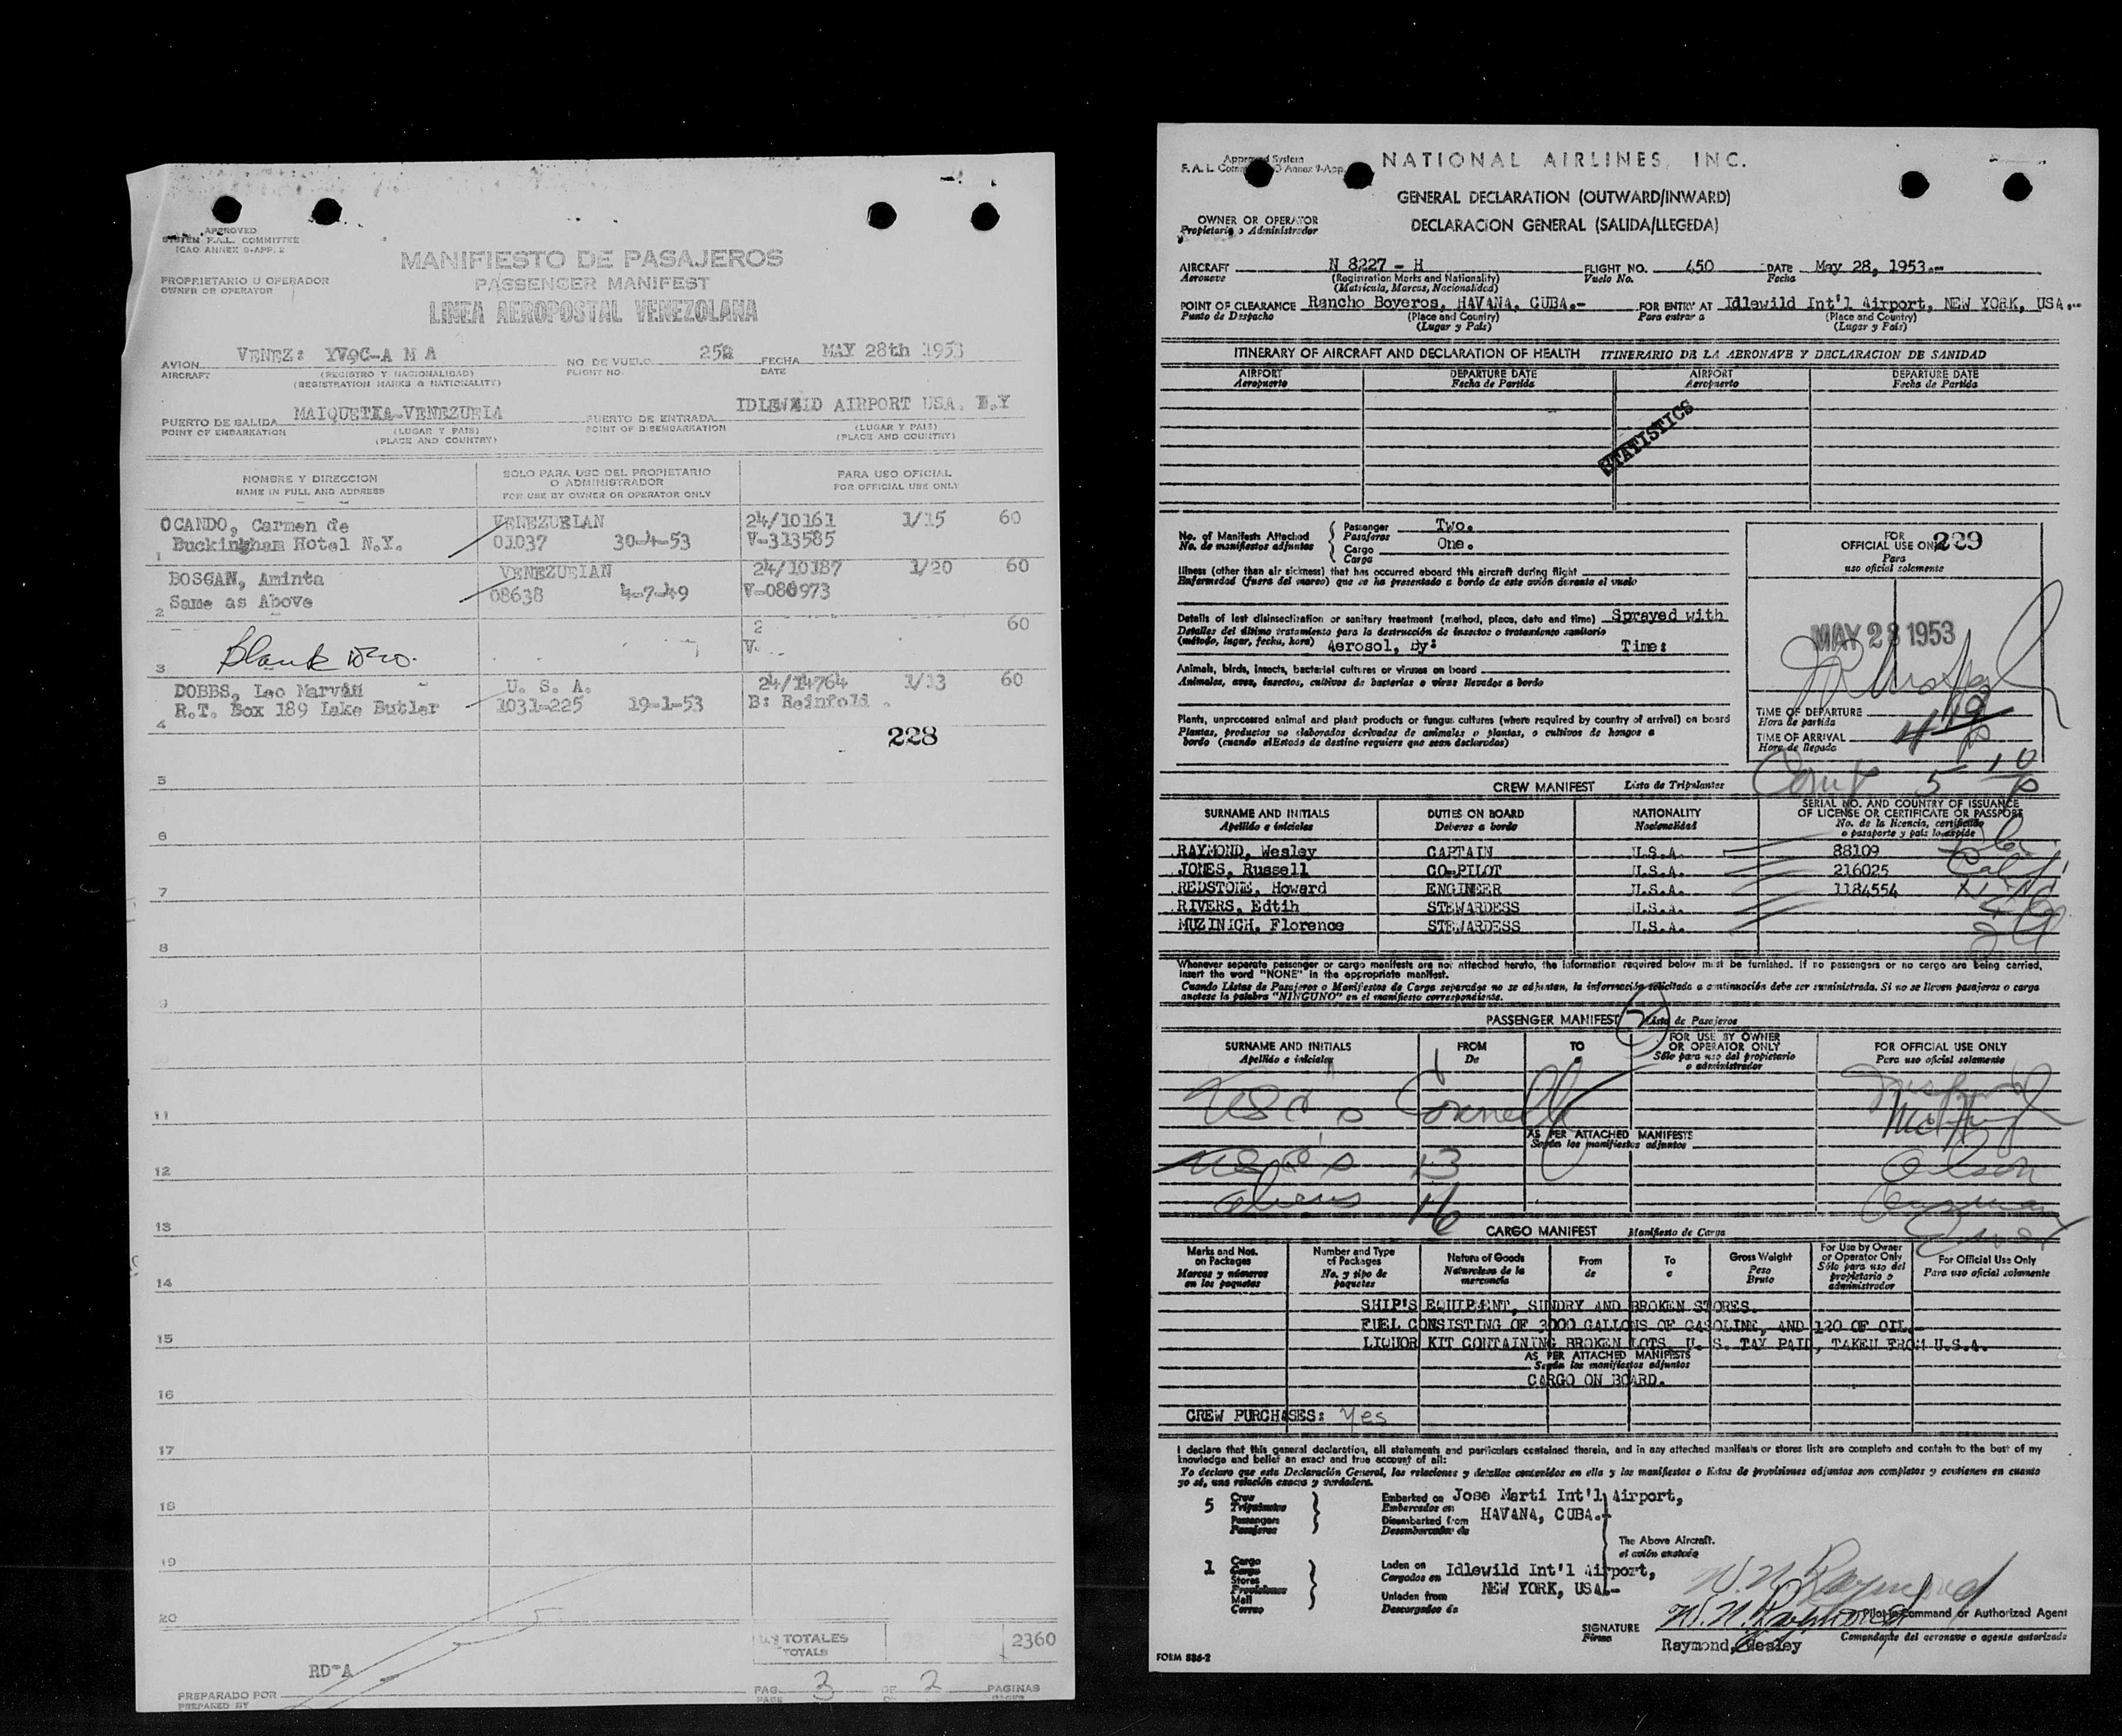 APPROVED
SYSTEM F.A.L. COMMITTEE
ICAO ANNEX 9-APP. 2
MANIFIESTO DE PASAJEROS
PROPRIETARIO U OPERADOR
OWNER OR OPERATOR
PASSENGER MANIFEST
LINEA AEROPOSTAL VENEZOLANA
AVION VENEZ: YV9C-A M A NO. DE VUELO 252 FECHA MAY 28th 1953
AIRCRAFT (REGISTRO Y NACIONALIDAD) FLIGHT NO. DATE
(REGISTRATION MARKS & NATIONALITY)
PUERTO DE SALIDA MAIQUETIA-VENEZUELA PUERTO DE ENTRADA IDLEWILD AIRPORT USA. N.Y
POINT OF EMBARKATION (LUGAR Y PAIS) POINT OF DISEMBARKATION (LUGAR Y PAIS)
(PLACE AND COUNTRY) (PLACE AND COUNTRY)
NOMBRE Y DIRECCION SOLO PARA USO DEL PROPIETARIO PARA USO OFICIAL
O ADMINISTRADOR
NAME IN FULL AND ADDRESS FOR USE BY OWNER OR OPERATOR ONLY FOR OFFICIAL USE ONLY
OCANDO, Carmen de VENEZUELAN 24/10161 1/15 60
1 Buckingham Hotel N.Y. 01037 30-4-53 V-313585
BOSCAN, Aminta VENEZUELAN 24/10187 1/20 60
2 Same as Above 08638 4-7-49 V-080973
60
3 Blank
DOBBS, Leo Marvin U. S. A. 24/14764 1/13 60
R.T. Box 189 Lake Butler 1031-225 19-1-53 B: Reinfold .
4
228
5
6
7
8
9
10
11
12
13
14
15
16
17
18
19
20
TOTALES 2360
TOTALS
RD-A
PREPARADO POR PAG. 3 DE 2 PAGINAS
PREPARED BY PAGE OF PAGES
Approved System
NATIONAL AIRLINES, INC.
GENERAL DECLARATION (OUTWARD/INWARD)
OWNER OR OPERATOR
Propietario o Administrador
DECLARACION GENERAL (SALIDA/LLEGEDA)
AIRCRAFT N 8227 - H FLIGHT NO. 450 DATE May 28, 1953.--
Aeronave (Registration Marks and Nationality) Vuelo No. Fecha
(Matrícula, Marcas, Nacionalidad)
POINT OF CLEARANCE Rancho Boyeros, HAVANA, CUBA.- FOR ENTRY AT Idlewild Int'l Airport, NEW YORK, USA.--
Punto de Despacho (Place and Country) Para entrar a (Place and Country)
(Lugar y País) (Lugar y País)
ITINERARY OF AIRCRAFT AND DECLARATION OF HEALTH ITINERARIO DE LA AERONAVE Y DECLARACION DE SANIDAD
AIRPORT DEPARTURE DATE AIRPORT DEPARTURE DATE
Aeropuerto Fecha de Partida Aeropuerto Fecha de Partida
STATISTICS
No. of Manifests Attached Passenger Two.
No. de manifiestos adjuntos Pasajeros
Cargo One.
Carga
FOR
OFFICIAL USE ONLY 229
Para
uso oficial solamente
Illness (other than air sickness) that has occurred aboard this aircraft during flight
Enfermedad (fuera del mareo) que se ha presentado a bordo de este avión durante el vuelo
Details of last disinsectization or sanitary treatment (method, place, date and time) Sprayed with
Detalles del último tratamiento para la destrucción de insectos o tratamiento sanitario
(método, lugar, fecha, hora) Aerosol, By: Time:
MAY 28 1953
Animals, birds, insects, bacterial cultures or viruses on board
Animales, aves, insectos, cultivos de bacterias o virus llevados a bordo
Plants, unprocessed animal and plant products or fungus cultures (where required by country of arrival) on board
Plantas, productos no elaborados derivados de animales o plantas, o cultivos de hongos a
bordo (cuando el Estado de destino requiere que sean declarados)
TIME OF DEPARTURE
Hora de partida
TIME OF ARRIVAL
Hora de llegada
CREW MANIFEST Lista de Tripulantes
SURNAME AND INITIALS DUTIES ON BOARD NATIONALITY SERIAL NO. AND COUNTRY OF ISSUANCE
OF LICENSE OR CERTIFICATE OR PASSPORT
Apellido e iniciales Deberes a bordo Nacionalidad No. de la licencia, certificado
o pasaporte y país lo expide
RAYMOND, Wesley CAPTAIN U.S.A. 88109
JONES, Russell CO-PILOT U.S.A. 216025
REDSTONE, Howard ENGINEER U.S.A. 1184554
RIVERS, Edtih STEWARDESS U.S.A.
MUZINICH, Florence STEWARDESS U.S.A.
Whenever separate passenger or cargo manifests are not attached hereto, the information required below must be furnished. If no passengers or no cargo are being carried,
insert the word "NONE" in the appropriate manifest.
Cuando Listas de Pasajeros o Manifiestos de Carga separados no se adjuntan, la información solicitada a continuación debe ser suministrada. Si no se lleven pasajeros o carga
anotese la palabra "NINGUNO" en el manifiesto correspondiente.
PASSENGER MANIFEST Lista de Pasajeros
SURNAME AND INITIALS FROM TO FOR USE BY OWNER
OR OPERATOR ONLY FOR OFFICIAL USE ONLY
Apellido e iniciales De a Sólo para uso del propietario
o administrador Para uso oficial solamente
AS PER ATTACHED MANIFESTS
Según los manifiestos adjuntos
13
aliens 16
CARGO MANIFEST Manifiesto de Carga
Marks and Nos.
on Packages
Marcas y números
en los paquetes
Number and Type
of Packages
No. y tipo de
paquetes
Nature of Goods
Naturaleza de la
mercancía
From
de
To
a
Gross Weight
Peso
Bruto
For Use by Owner
or Operator Only
Sólo para uso del
propietario o
administrador
For Official Use Only
Para uso oficial solamente
SHIP'S EQUIPMENT, SUNDRY AND BROKEN STORES.
FUEL CONSISTING OF 3000 GALLONS OF GASOLINE, AND 120 OF OIL.
LIQUOR KIT CONTAINING BROKEN LOTS U. S. TAX PAID, TAKEN FROM U.S.A.
AS PER ATTACHED MANIFESTS
Según los manifiestos adjuntos
CARGO ON BOARD.
CREW PURCHASES: Yes
I declare that this general declaration, all statements and particulars contained therein, and in any attached manifests or stores lists are complete and contain to the best of my
knowledge and belief an exact and true account of all:
Yo declaro que esta Declaración General, las relaciones y detalles contenidos en ella y los manifiestos o listas de provisiones adjuntos son completos y contienen en cuanto
yo sé, una relación exacta y verdadera.
5 Crew Embarked on Jose Marti Int'l Airport,
Tripulantes Embarcados en
Passengers Disembarked from HAVANA, CUBA.-
Pasajeros Desembarcados de
The Above Aircraft.
el avión anotado
1 Cargo Laden on Idlewild Int'l Airport,
Carga Cargados en
Stores
Provisiones Unladen from NEW YORK, USA.-
Mail
Correo Descargados de
W. N. Raymond
SIGNATURE W. N. Raymond Pilot-in-Command or Authorized Agent
Firma Raymond, Wesley Comandante del aeronave o agente autorizado
FORM 886-2